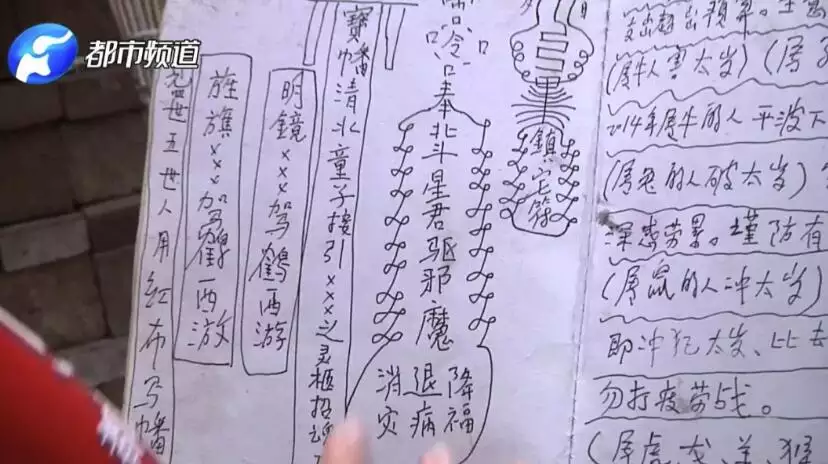 都市频道
五世人用红布写幡
旌旗×××驾鹤西游
明鏡×××驾鶴西游
寶幡清北童子接引×××之灵柩招魂
奉北斗星君驱邪魔
消灾
退病
降福
鎮宅符
(属牛人害太岁)(属
2014年属牛的人平波下
(属兔的人破太岁)
深感劳累。谨防有
(属鼠的人冲太岁)
即冲犯太岁、比去
勿打疲劳战。
(属虎、龙、羊、猴